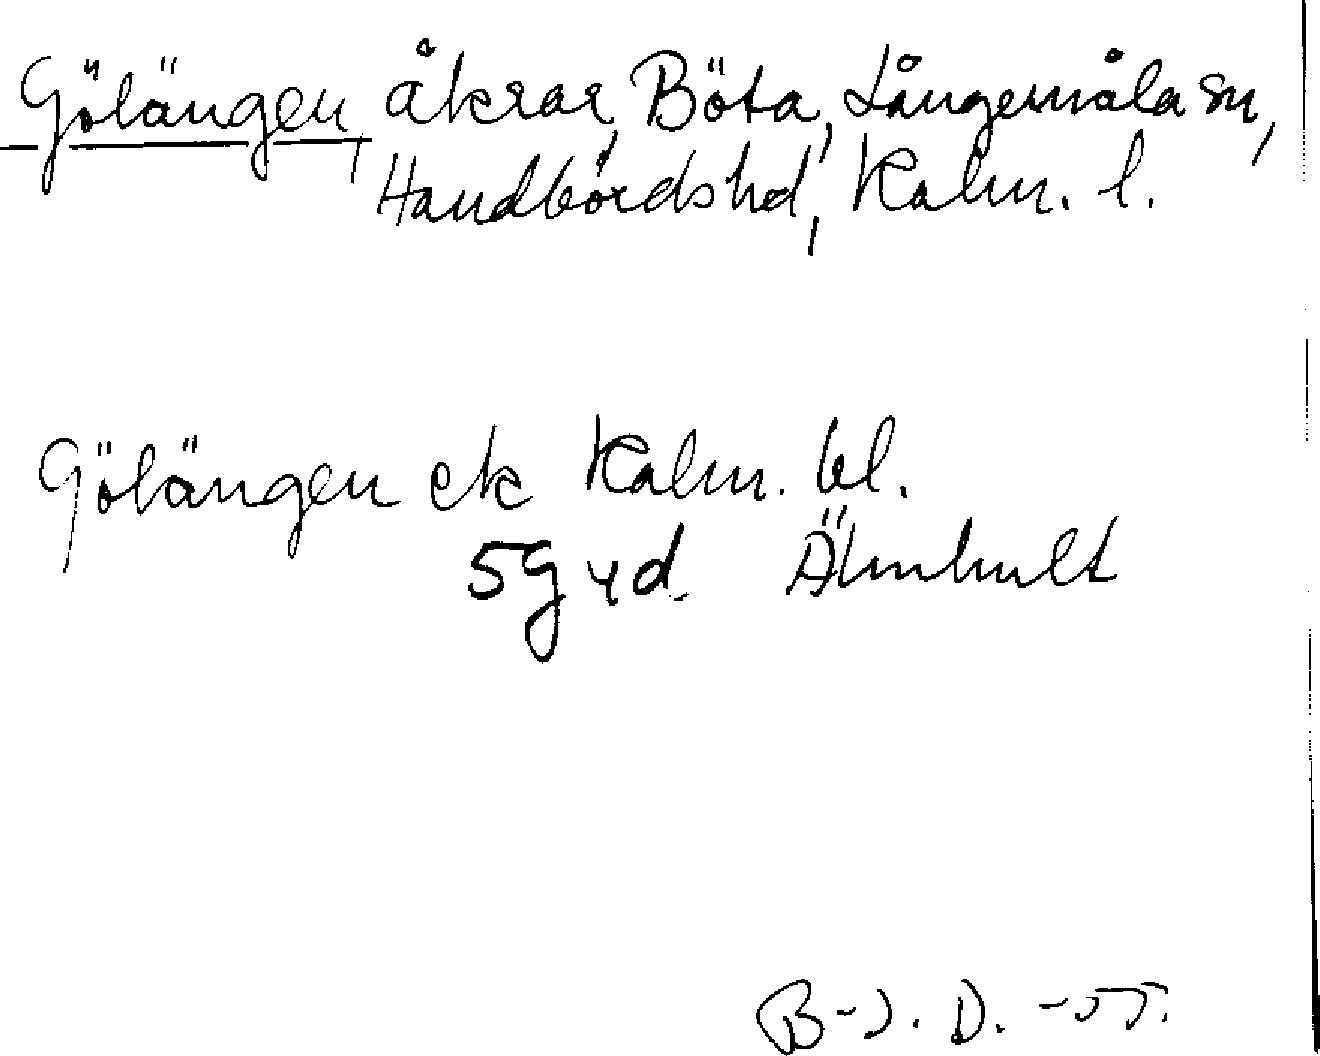 Gölängen, åkrar, Böta, Långemåla sn,
Handbördshd, Kalm. l.
Gölängen ek Kalm. bl.
5G4d. Älmhult
B-J. D. -55.